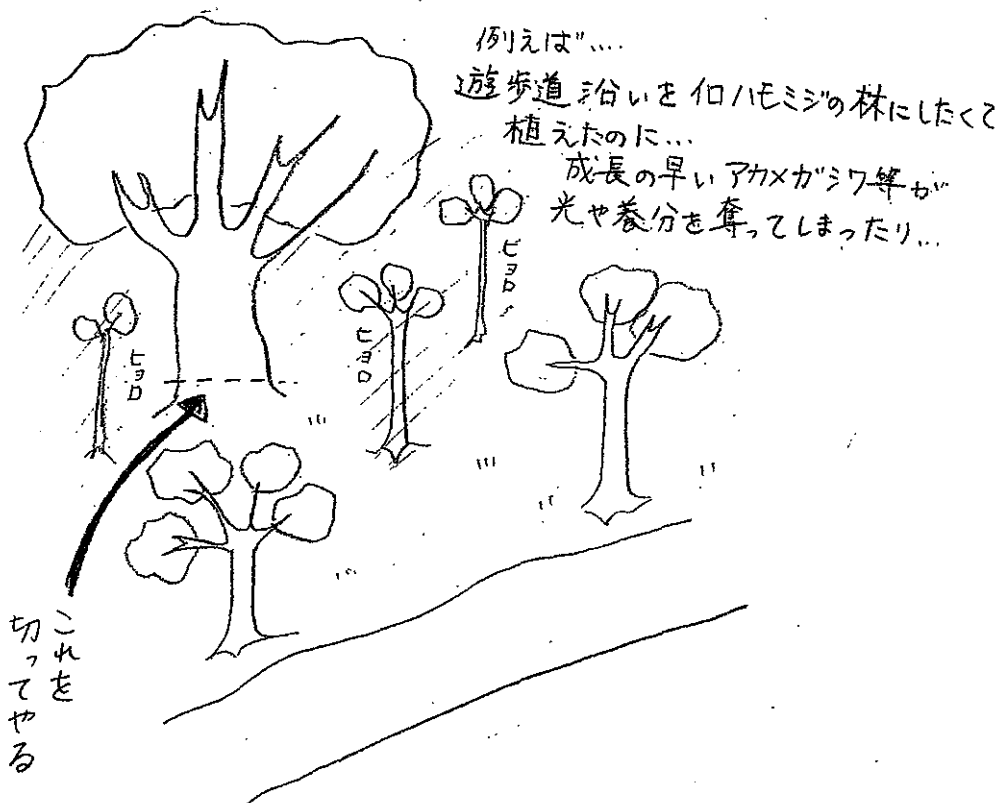 例えば…
遊歩道沿いをイロハモミジの林にしたくて
植えたのに…
成長の早いアカメガシワ等が
光や養分を奪ってしまったり…
ヒョロ
ヒョロ
ヒョロ
これを
切ってやる